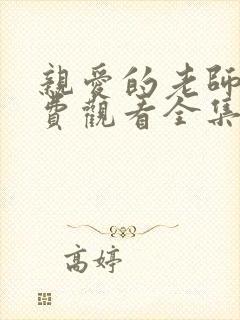 親愛的老師
費觀看全集
高婷